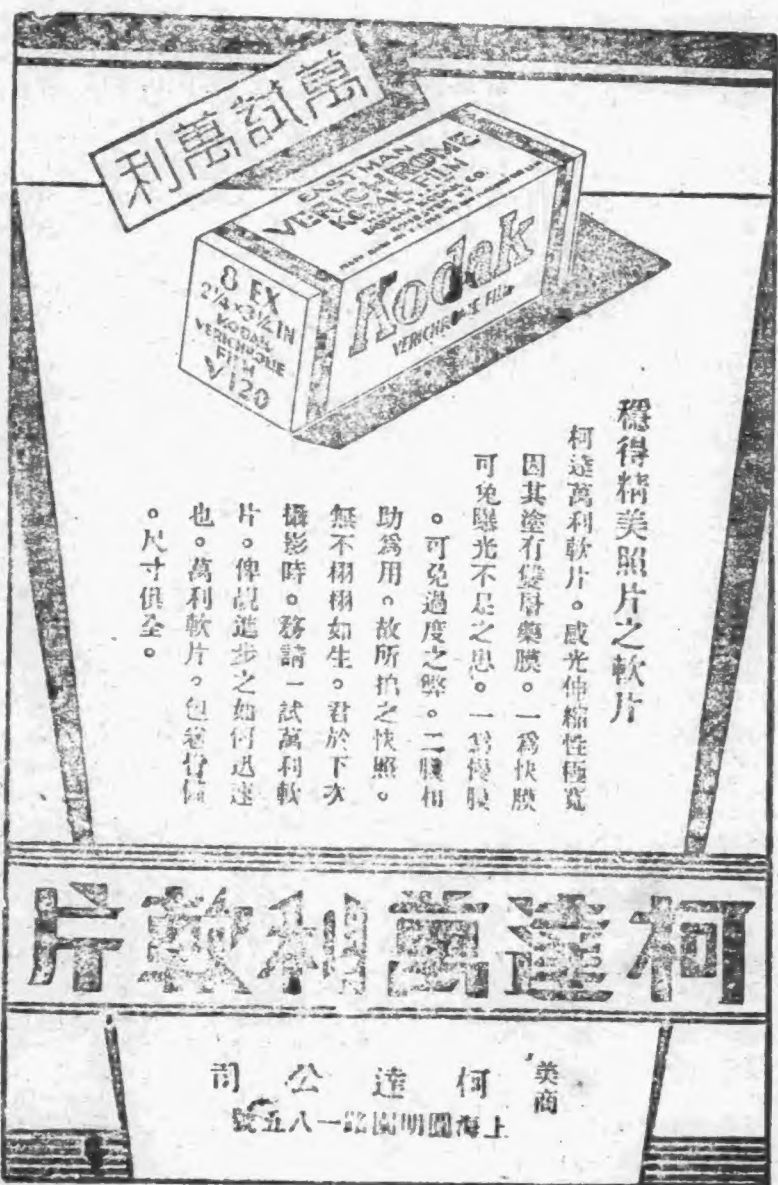 萬試萬利
EASTMAN
VERICHROME
KODAK FILM
Kodak
VERICHROME FILM
8 EX
2¼×3¼ IN
KODAK
VERICHROME
FILM
V120
穩得精美照片之軟片
柯達萬利軟片。感光伸縮性極寬
因其塗有雙層藥膜。一爲快膜
可免曝光不足之患。一爲慢膜
。可免過度之弊。二膜相
助爲用。故所拍之快照。
無不栩栩如生。君於下次
攝影時。務請一試萬利軟
片。俾覘進步之如何迅速
也。萬利軟片。包
。尺寸俱全。
柯達萬利軟片
美商
柯達公司
上海圓明園路一八五號